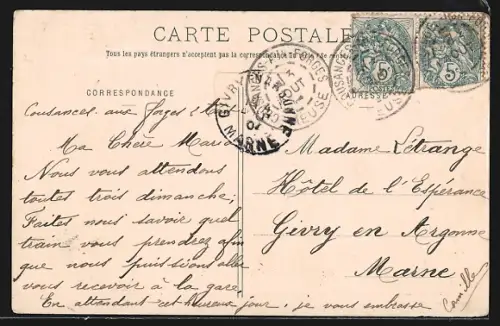 CARTE POSTALE
Tous les pays étrangers n'acceptent pas la correspondance
CORRESPONDANCE
ADRESSE
Cousances aux forges 1
Ma Chère Marie
Nous vous attendons
toutes trois dimanche;
Faites nous savoir quel
train vous prendrez afin
que nous puissions aller
vous recevoir à la gare
En attendant cet heureux jour, je vous embrasse
Camille
Madame Létrange
Hôtel de l'Espérance
Givry en Argonne
Marne
AOUT
MEUSE
MARNE
5
5
POSTES